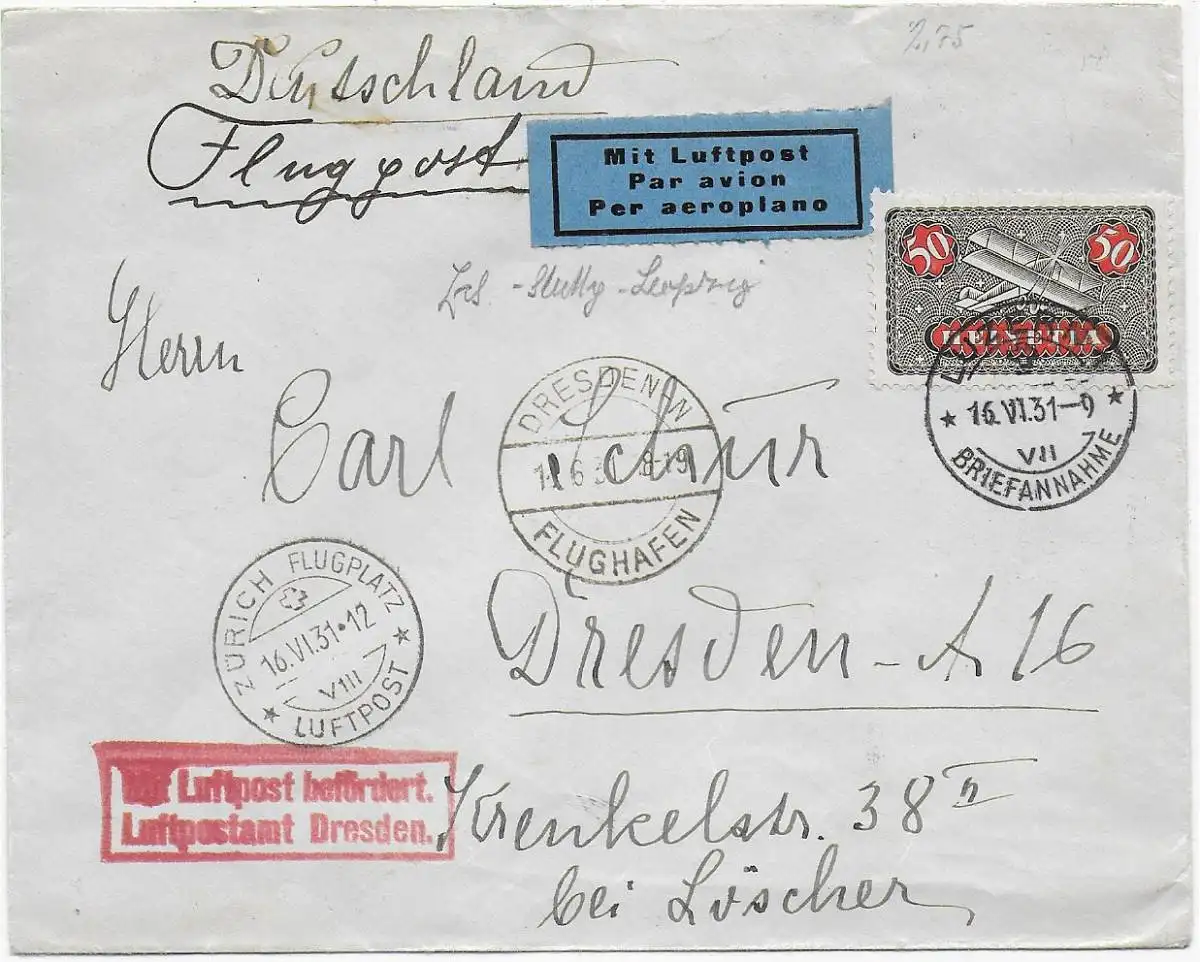 2,75
Deutschland
Flugpost
Mit Luftpost
Par avion
Per aeroplano
50 50
HELVETIA
- Stuttg - Leipzig
Herrn
Carl Schür
DRESDEN N
6 3 8-19
FLUGHAFEN
16.VI.31-9
VII
BRIEFANNAHME
ZÜRICH FLUGPLATZ
16.VI.31•12
VIII
LUFTPOST
Dresden - A 16
Mit Luftpost befördert.
Luftpostamt Dresden.
Krenkelstr. 38 II
bei Löscher